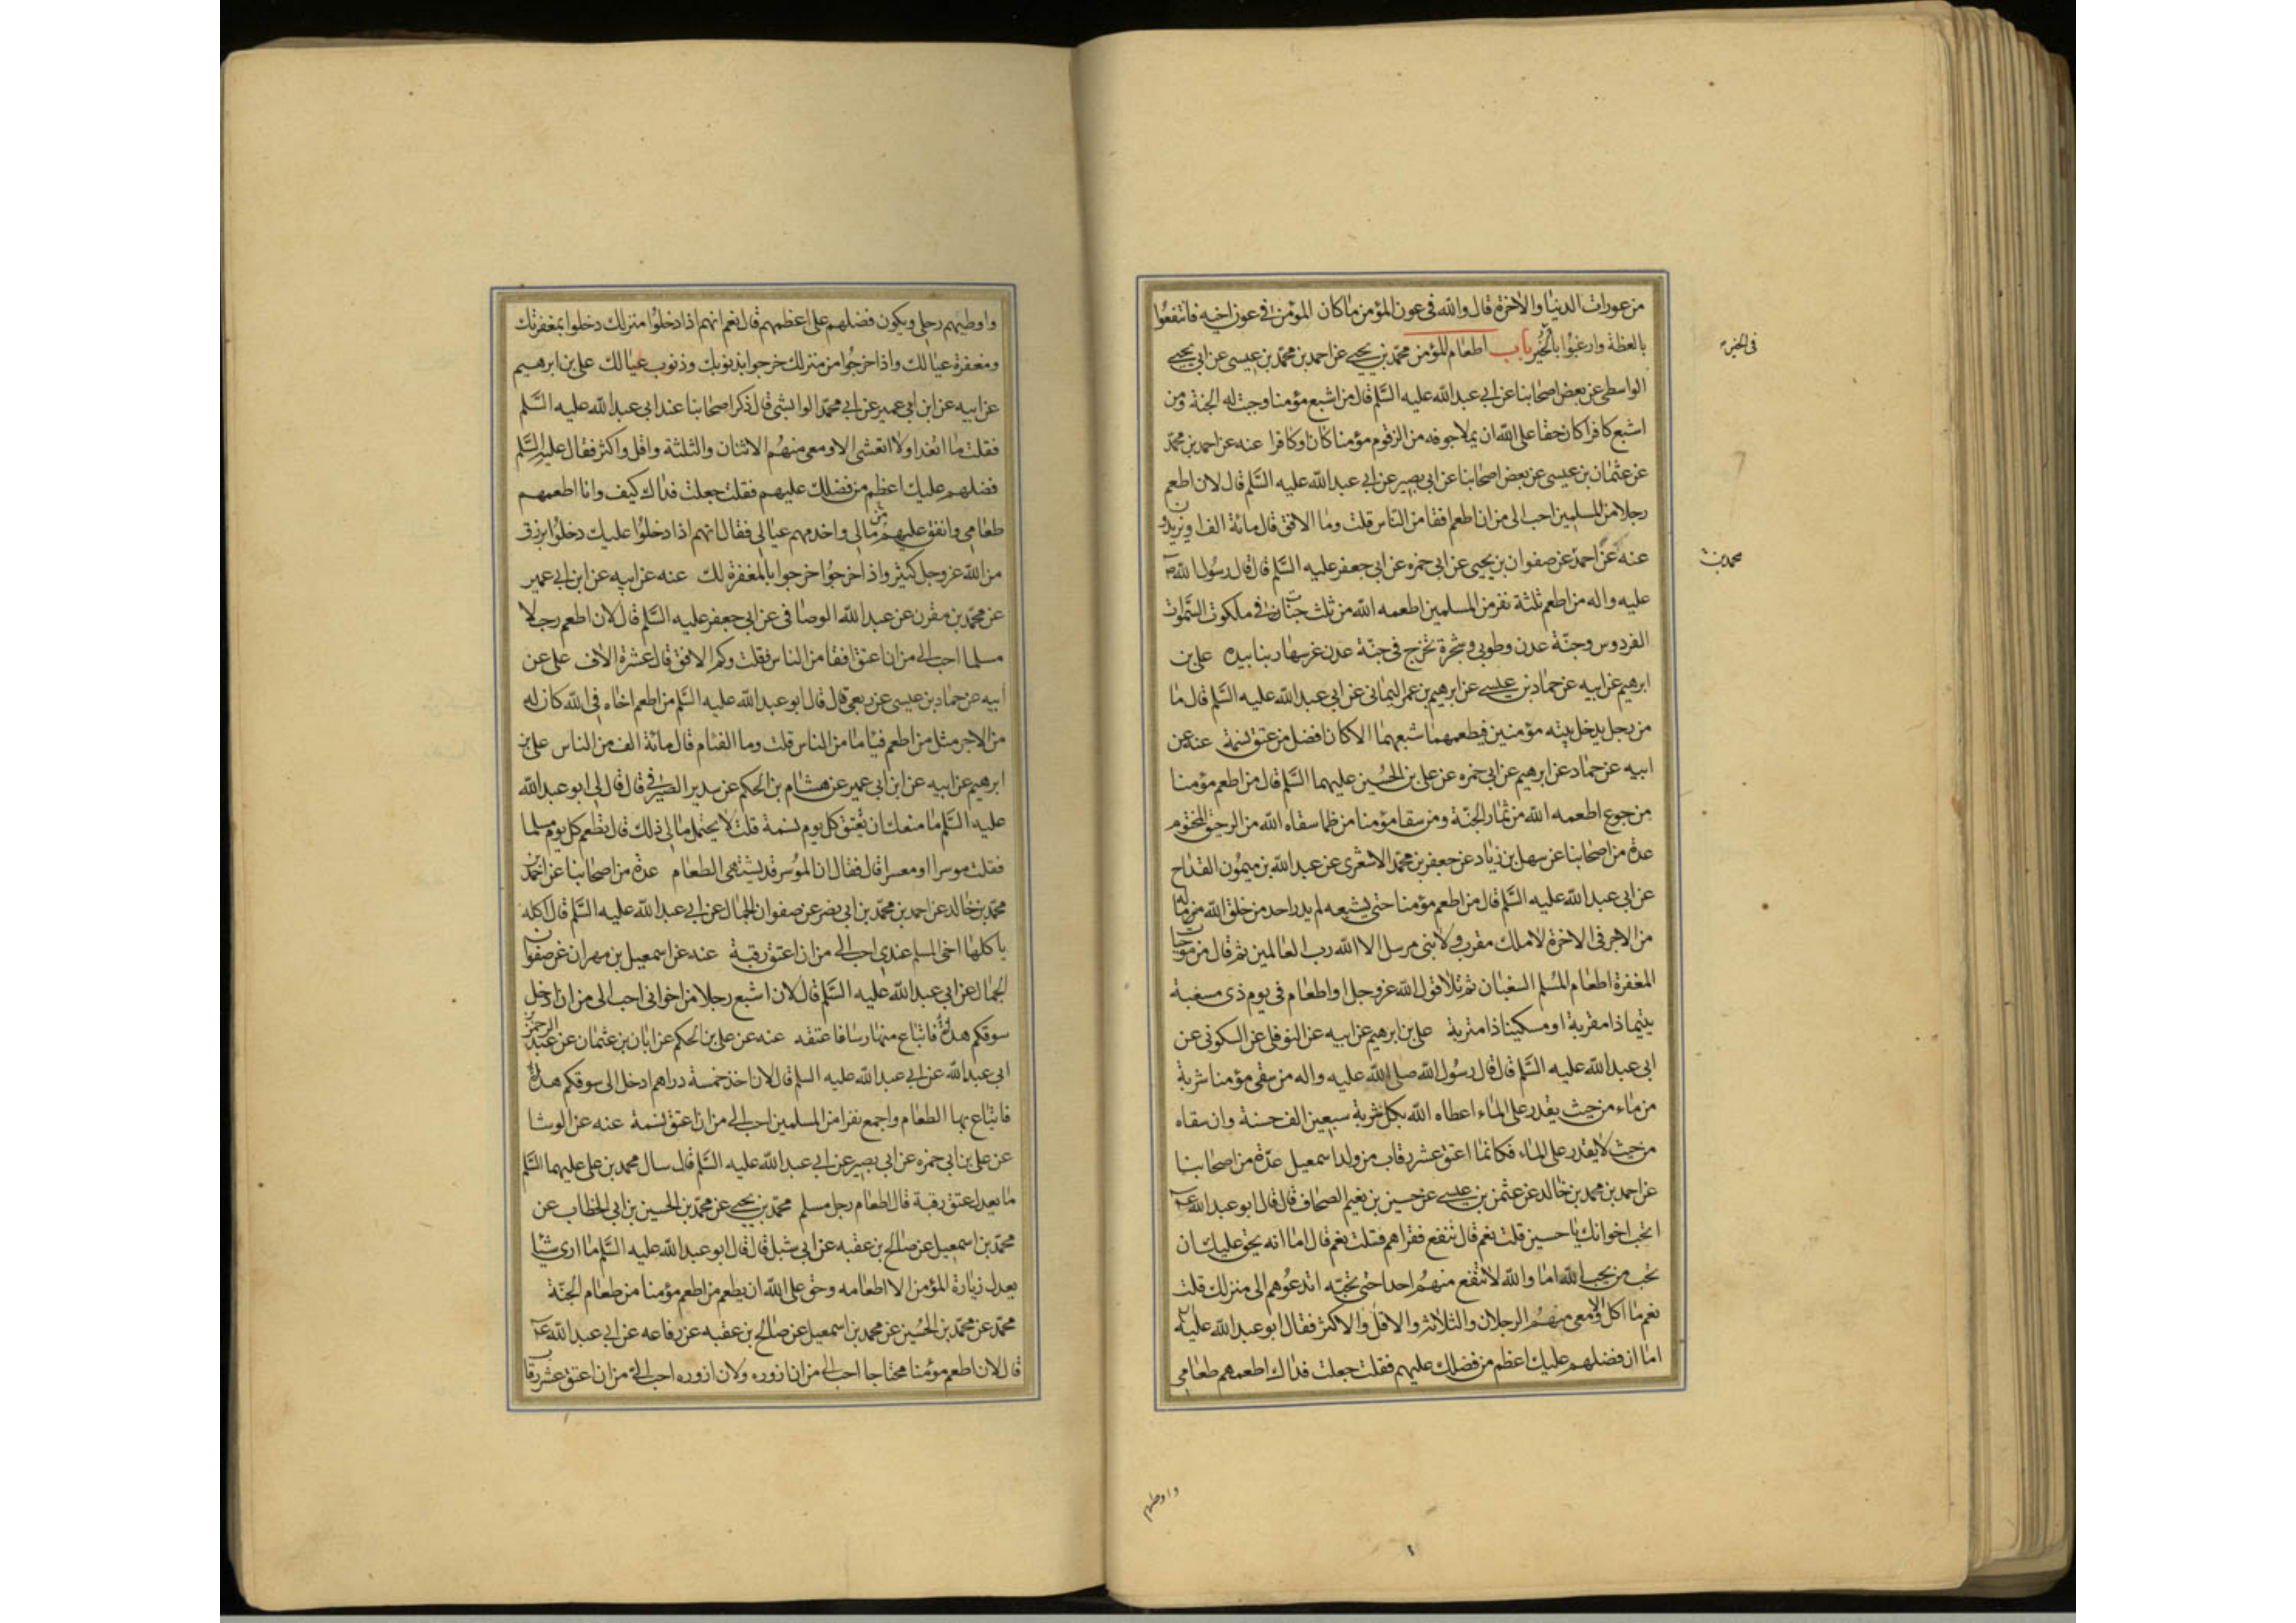 من عورات الدنيا والآخرة قال والله في عون المؤمن ما كان المؤمن في عون اخيه فانتفعوا
بالعظة وارغبوا بالخير باب اطعام المؤمن محمد بن يحيى عن احمد بن محمد بن عيسى عن ابي يحيى
في الخير
الواسطي عن بعض اصحابنا عن ابي عبد الله عليه السلم قال من اشبع مؤمنا وجبت له الجنة ومن
اشبع كافرا كان حقا على الله ان يملا جوفه من الزقوم مؤمنا كان او كافرا عنه عن احمد بن محمد
عن عثمان بن عيسى عن بعض اصحابنا عن ابي بصير عن ابي عبد الله عليه السلم قال لان اطعم
رجلا من المسلمين احب الى من ان اطعم افقا من الناس قلت وما الافق قال مائة الف او يزيدون
عنه عن احمد عن صفوان بن يحيى عن ابي حمزه عن ابي جعفر عليه السلم قال قال رسول الله ص
محمد بن
عليه واله من اطعم ثلثة نفر من المسلمين اطعمه الله من ثلث جنات في ملكوت السموات
الفردوس وجنة عدن وطوبى وشجرة تخرج في جنة عدن غرسها ربنا بيده على بن
ابرهيم عن ابيه عن حماد بن عيسى عن ابرهيم بن عمر اليماني عن ابي عبد الله عليه السلم قال ما
من رجل يدخل بيته مؤمنين فيطعمهما شبعهما الا كان افضل من عتق نسمة عنه عن
ابيه عن حماد عن ابرهيم عن ابي حمزه عن على بن الحسين عليهما السلم قال من اطعم مؤمنا
من جوع اطعمه الله من ثمار الجنة ومن سقا مؤمنا من ظما سقاه الله من الرحيق المختوم
عدة من اصحابنا عن سهل بن زياد عن جعفر بن محمد الاشعرى عن عبد الله بن ميمون القداح
عن ابي عبد الله عليه السلم قال من اطعم مؤمنا حتى يشبعه لم يدر احد من خلق الله ما له
من الاجر في الاخرة لا ملك مقرب ولا نبي مرسل الا الله رب العالمين ثم قال من موجبات
المغفرة اطعام المسلم السغبان ثم تلا قول الله عز وجل او اطعام في يوم ذي مسغبة
يتيما ذا مقربة او مسكينا ذا متربة على بن ابرهيم عن ابيه عن النوفلي عن السكوني عن
ابي عبد الله عليه السلم قال قال رسول الله صلى الله عليه واله من سقى مؤمنا شربة
من ماء من حيث يقدر على الماء اعطاه الله بكل شربة سبعين الف حسنة وان سقاه
من حيث لا يقدر على الماء فكانما اعتق عشر رقاب من ولد اسمعيل عدة من اصحابنا
عن احمد بن محمد بن خالد عن عثمن بن عيسى عن حسين بن نعيم الصحاف قال قال ابو عبد الله ع
اتحب اخوانك يا حسين قلت نعم قال تنفع فقراهم قلت نعم قال اما انه يحق عليك ان
تحب من يحب الله اما والله لا تنفع منهم احدا حتى تحبه اتدعوهم الى منزلك قلت
نعم ما اكل الا ومعي منهم الرجلان والثلاثة والاقل والاكثر فقال ابو عبد الله عليه
اما ان فضلهم عليك اعظم من فضلك عليهم فقلت جعلت فداك اطعمهم طعامي
واوطيهم
واوطيهم رحلي ويكون فضلهم على اعظمهم قال نعم انهم اذا دخلوا منزلك دخلوا بمغفرتك
ومغفرة عيالك واذا خرجوا من منزلك خرجوا بذنوبك وذنوب عيالك على بن ابرهيم
عن ابيه عن ابن ابي عمير عن ابي محمد الوابشي قال ذكر اصحابنا عند ابي عبد الله عليه السلم
فقلت ما اتغدا ولا اتعشى الا ومعي منهم الاثنان والثلثة واقل واكثر فقال عليه السلم
فضلهم عليك اعظم من فضلك عليهم فقلت جعلت فداك كيف وانا اطعمهم
طعامي وانفق عليهم من مالي واخدمهم عيالي فقال انهم اذا دخلوا عليك دخلوا برزق
من الله عز وجل كثير واذا خرجوا خرجوا بالمغفرة لك عنه عن ابيه عن ابن ابي عمير
عن محمد بن مقرن عن عبد الله الوصافي عن ابي جعفر عليه السلم قال لان اطعم رجلا
مسلما احب الي من ان اعتق افقا من الناس فقلت وكم الافق قال عشرة الاف على عن
ابيه عن حماد بن عيسى عن ربعي قال قال ابو عبد الله عليه السلم من اطعم اخاه في الله كان له
من الاجر مثل من اطعم فياما من الناس قلت وما الفئام قال مائة الف من الناس على بن
ابرهيم عن ابيه عن ابن ابي عمير عن هشام بن الحكم عن سدير الصيرفي قال قال لي ابو عبد الله
عليه السلم ما منعك ان تعتق كل يوم نسمة قلت لا يحتمل مالي ذلك قال تطعم كل يوم مسلما
فقلت موسرا او معسرا قال فقال ان الموسر قد يشتهي الطعام عدة من اصحابنا عن احمد بن
محمد بن خالد عن احمد بن محمد بن ابي نصر عن صفوان الجمال عن ابي عبد الله عليه السلم قال اكله
ياكلها اخي المسلم عندي احب الي من ان اعتق رقبة عنه عن اسمعيل بن مهران عن صفوان
الجمال عن ابي عبد الله عليه السلم قال لان اشبع رجلا من اخواني احب الى من ان ادخل
سوقكم هذا فابتاع منها راسا فاعتقه عنه عن على بن الحكم عن ابان بن عثمان عن عبد الرحمن
ابي عبد الله عن ابي عبد الله عليه السلم قال لان اخذ خمسة دراهم ادخل الى سوقكم هذه
فابتاع بها الطعام واجمع نفرا من المسلمين احب الي من ان اعتق نسمة عنه عن الوشا
عن على بن ابي حمزه عن ابي بصير عن ابي عبد الله عليه السلم قال سال محمد بن على عليهما السلم
ما يعدل عتق رقبة قال اطعام رجل مسلم محمد بن يحيى عن محمد بن الحسين بن ابي الخطاب عن
محمد بن اسمعيل عن صالح بن عقبه عن ابي شبل قال قال ابو عبد الله عليه السلم ما ارى شيئا
يعدل زيارة المؤمن الا اطعامه وحق على الله ان يطعم من اطعم مؤمنا من طعام الجنة
محمد عن محمد بن الحسين عن محمد بن اسمعيل عن صالح بن عقبه عن رفاعه عن ابي عبد الله ع
قال لان اطعم مؤمنا محتاجا احب الي من ان ازوره ولان ازوره احب الي من ان اعتق عشر رقاب